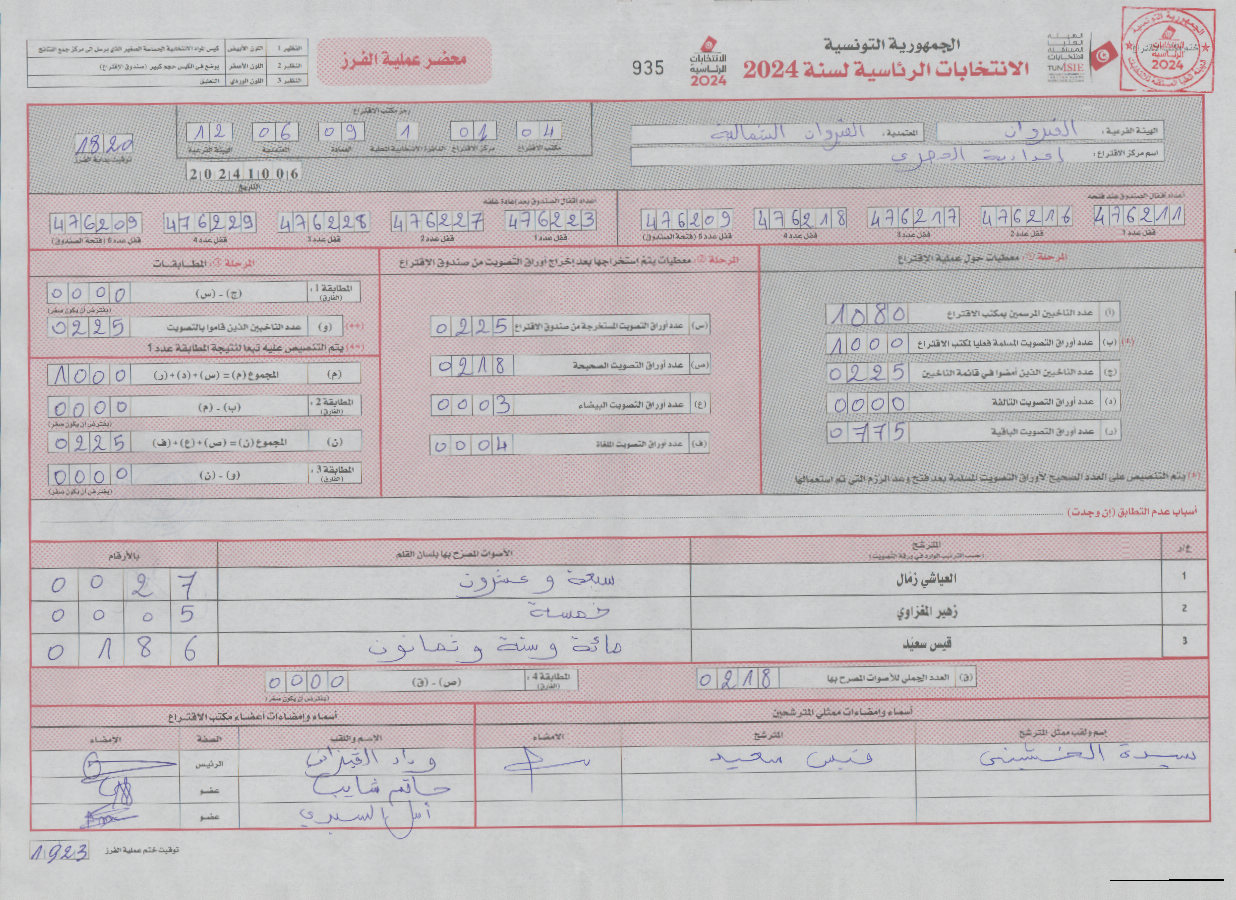 الجمهورية التونسية
الانتخابات الرئاسية لسنة 2024
الهيئة العليا المستقلة للانتخابات
TUNISIE
الانتخابات الرئاسية 2024
935
محضر عملية الفرز
النظير 1 اللون الأبيض
النظير 2 اللون الأصفر يوضع في الكيس حجم كبير (صندوق الاقتراع)
النظير 3 اللون الوردي التعليق
الهيئة الفرعية : القيروان المعتمدية : القيروان الشمالية
اسم مركز الاقتراع :
رمز مكتب الاقتراع
04 01 1 09 06 12
مكتب الاقتراع مركز الاقتراع الدائرة الانتخابية المحلية العمادة المعتمدية الهيئة الفرعية
20241006
التاريخ
1820
توقيت بداية الفرز
أعداد أقفال الصندوق عند فتحه
476211 476216 476217 476218 476209
قفل عدد 1 قفل عدد 2 قفل عدد 3 قفل عدد 4 قفل عدد 5 (فتحة الصندوق)
أعداد أقفال الصندوق بعد إعادة غلقه
476223 476227 476228 476229 476209
قفل عدد 1 قفل عدد 2 قفل عدد 3 قفل عدد 4 قفل عدد 5 (فتحة الصندوق)
المرحلة 1: معطيات حول عملية الاقتراع
(أ) عدد الناخبين المرسمين بمكتب الاقتراع 1080
(*) (ب) عدد أوراق التصويت المسلمة فعليا لمكتب الاقتراع 1000
(ج) عدد الناخبين الذين أمضوا في قائمة الناخبين 0225
(د) عدد أوراق التصويت التالفة 0000
(ر) عدد أوراق التصويت الباقية 0775
(*) يتم التنصيص على العدد الصحيح لأوراق التصويت المسلمة بعد فتح وعد الرزم التي تم استعمالها
المرحلة 2: معطيات يتم استخراجها بعد إخراج أوراق التصويت من صندوق الاقتراع
(س) عدد أوراق التصويت المستخرجة من صندوق الاقتراع 0225
(ص) عدد أوراق التصويت الصحيحة 0218
(ع) عدد أوراق التصويت البيضاء 0003
(ف) عدد أوراق التصويت الملغاة 0004
المرحلة 3: المطابقات
المطابقة 1 : (الفارق) (ج) - (س) 0000
(يفترض أن يكون صفر)
(**) (و) عدد الناخبين الذين قاموا بالتصويت 0225
(**) يتم التنصيص عليه تبعا لنتيجة المطابقة عدد 1
(م) المجموع (م) = (س)+(د)+(ر) 1000
المطابقة 2 : (الفارق) (ب) - (م) 0000
(يفترض أن يكون صفر)
(ن) المجموع (ن) = (ص)+(ع)+(ف) 0225
المطابقة 3 : (الفارق) (و) - (ن) 0000
(يفترض أن يكون صفر)
أسباب عدم التطابق (إن وجدت)
ع/ر المترشح الأصوات المصرح بها بلسان القلم بالأرقام
(حسب الترتيب الوارد في ورقة التصويت)
1 العياشي زمّال سبعة وعشرون 0027
2 زهير المغزاوي خمسة 0005
3 قيس سعيّد مائة وستة وثمانون 0186
(ق) العدد الجملي للأصوات المصرح بها 0218
المطابقة 4 : (الفارق) (ص) - (ق) 0000
(يفترض أن يكون صفر)
أسماء وإمضاءات ممثلي المترشحين
إسم ولقب ممثل المترشح المترشح الامضاء
سيدة قيس سعيد
أسماء وإمضاءات أعضاء مكتب الاقتراع
الاسم واللقب الصفة الإمضاء
الرئيس
حاتم شايب عضو
أمل عضو
1923
توقيت ختم عملية الفرز